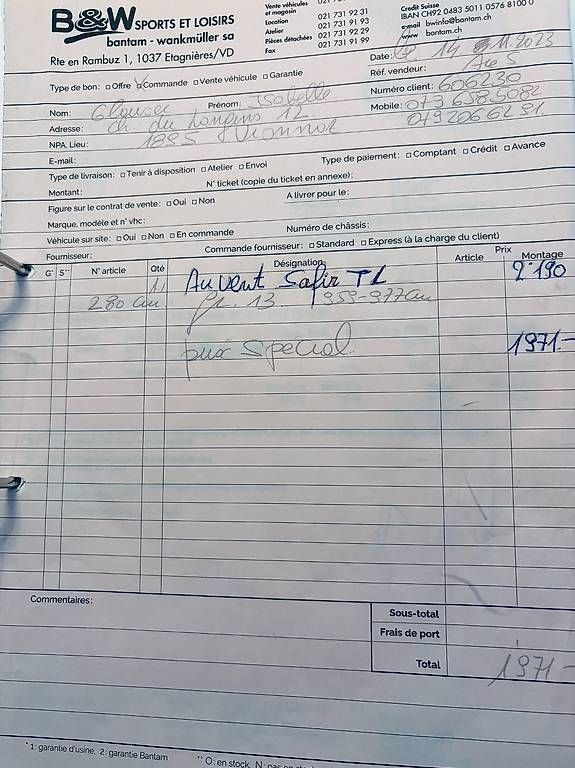 B&W SPORTS ET LOISIRS
bantam - wankmüller sa
Rte en Rambuz 1, 1037 Etagnières/VD
Vente véhicules
et magasin 021 731 92 31
Location 021 731 91 93
Atelier 021 731 92 29
Pièces détachées 021 731 91 99
Fax
Credit Suisse
IBAN CH92 0483 5011 0576 8100 0
e-mail bwinfo@bantam.ch
www bantam.ch
Type de bon: □ Offre □ Commande □ Vente véhicule □ Garantie
Date: Le 14 11.2023
Réf. vendeur:
Nom: Prénom: Isabelle
Numéro client: 606230
Adresse: ch du 12
Mobile: 079 658 5082
NPA, Lieu: 1895 Vionnaz
079 206 62 91
E-mail:
Type de livraison: □ Tenir à disposition □ Atelier □ Envoi Type de paiement: □ Comptant □ Crédit □ Avance
Montant: N° ticket (copie du ticket en annexe):
Figure sur le contrat de vente: □ Oui □ Non A livrer pour le:
Marque, modèle et n° vhc:
Véhicule sur site: □ Oui □ Non □ En commande Numéro de châssis:
Fournisseur: Commande fournisseur: □ Standard □ Express (à la charge du client)
G* S** N° article Qté Désignation Article Prix Montage
1 Auvent Safir TL 2'190
280 cm gr. 13 959-977cm
prix special 1971.-
Commentaires:
Sous-total
Frais de port
Total 1971.-
* 1: garantie d'usine, 2: garantie Bantam ** O: en stock, N: